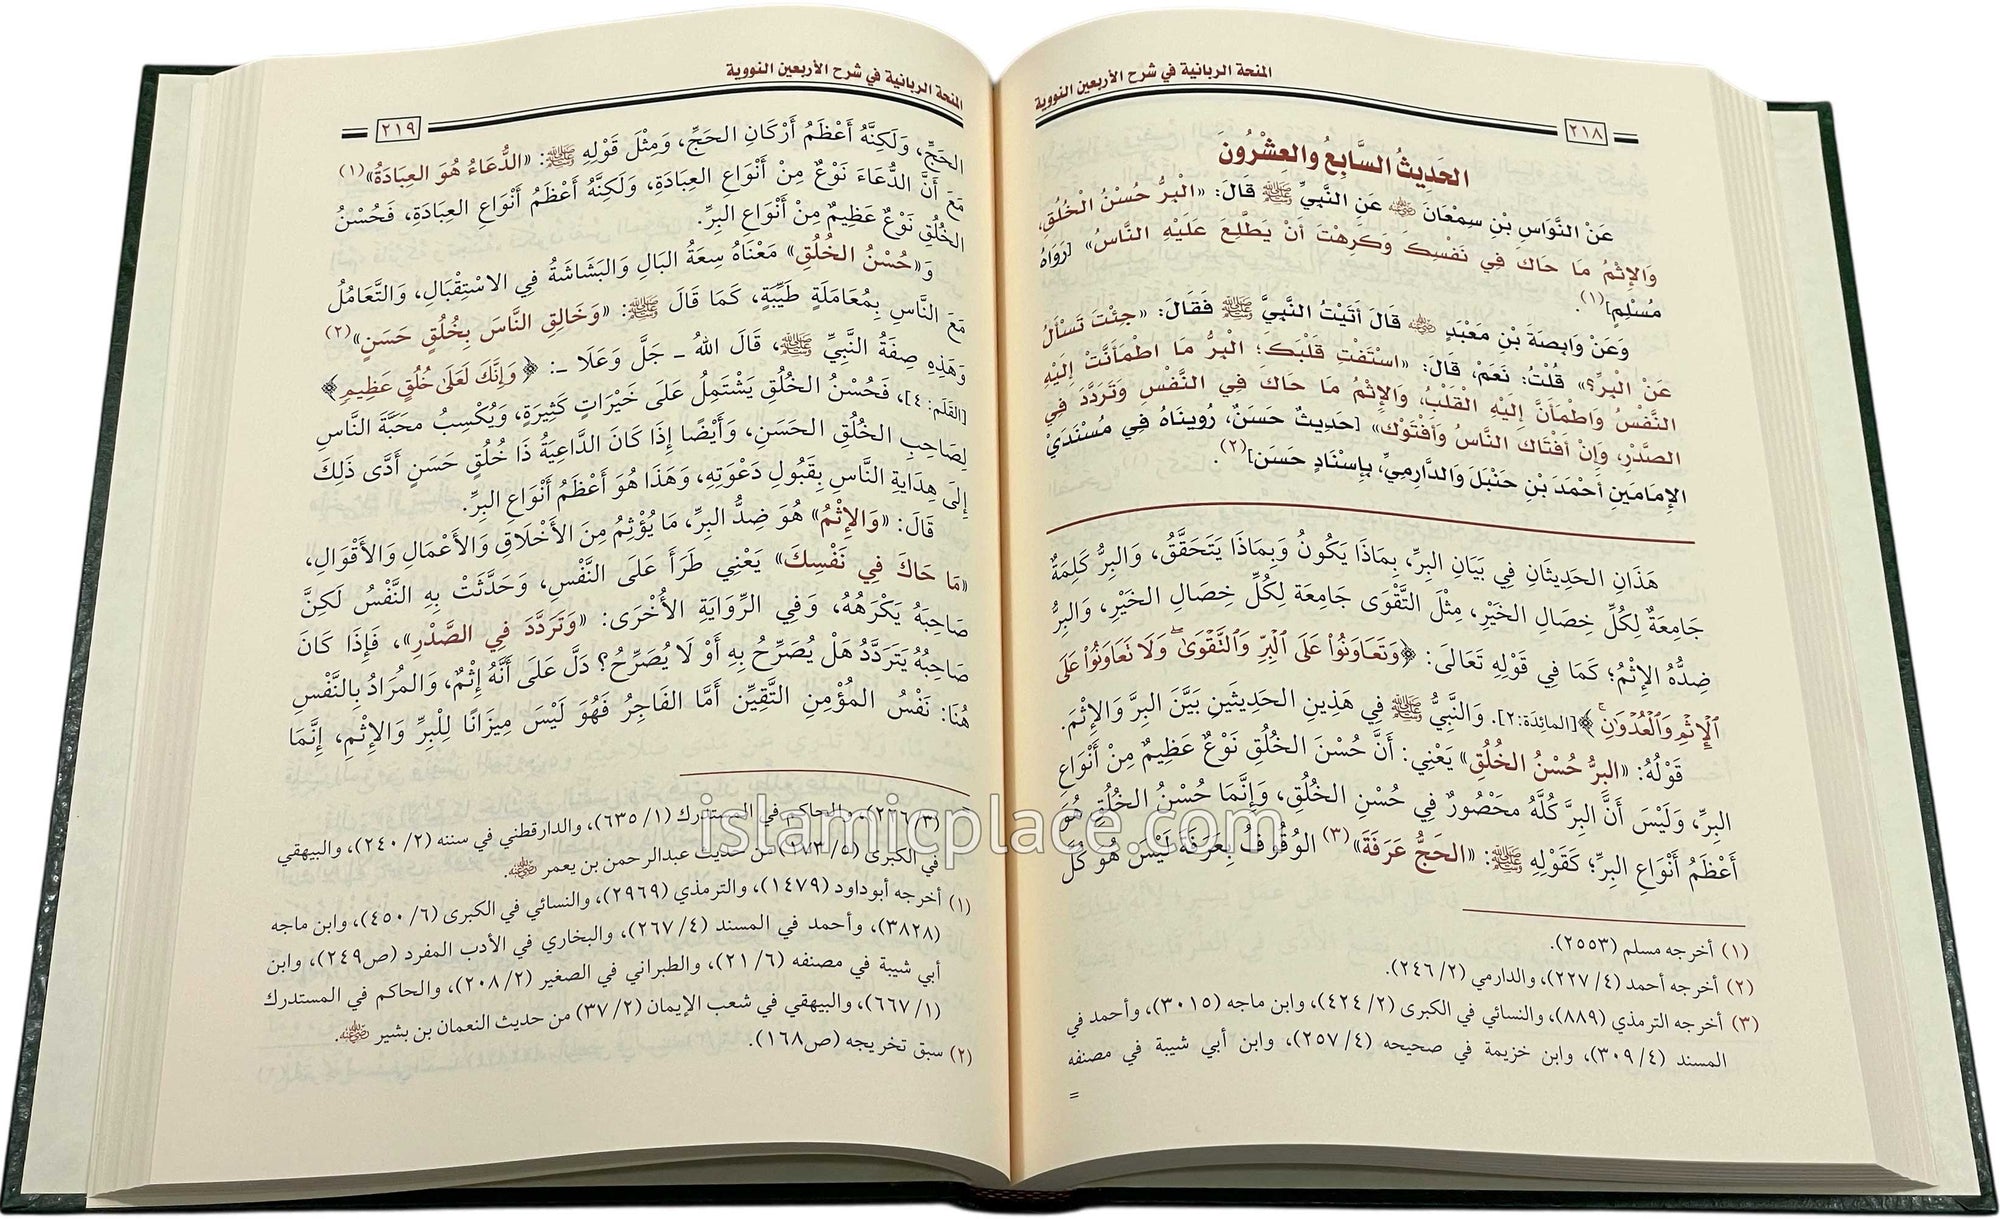 المنحة الربانية في شرح الأربعين النووية
٢١٨
الحَدِيثُ السَّابِعُ والعِشْرُونَ
عَنْ النَّوَاسِ بْنِ سِمْعَانَ ﵁ عَنِ النَّبِيِّ ﷺ قَالَ: «الْبِرُّ حُسْنُ الْخُلُقِ،
وَالإِثْمُ مَا حَاكَ فِي نَفْسِكَ وَكَرِهْتَ أَنْ يَطَّلِعَ عَلَيْهِ النَّاسُ» [رَوَاهُ
مُسْلِمٍ](١).
وَعَنْ وَابِصَةَ بْنِ مَعْبَدٍ ﵁ قَالَ أَتَيْتُ النَّبِيَّ ﷺ فَقَالَ: «جِئْتَ تَسْأَلُ
عَنْ الْبِرِّ؟» قُلْتُ: نَعَمْ، قَالَ: «اسْتَفْتِ قَلْبَكَ؛ البِرُّ مَا اطْمَأَنَّتْ إِلَيْهِ
النَّفْسُ وَاطْمَأَنَّ إِلَيْهِ الْقَلْبُ، وَالإِثْمُ مَا حَاكَ فِي النَّفْسِ وَتَرَدَّدَ فِي
الصَّدْرِ، وَإِنْ أَفْتَاكَ النَّاسُ وَأَفْتَوْكَ» [حَدِيثٌ حَسَنٌ، رُوِينَاهُ فِي مُسْنَدَيْ
الإِمَامَينِ أَحْمَدَ بْنِ حَنْبَلَ وَالدَّارِمِيِّ، بِإِسْنَادٍ حَسَن](٢).
هَذَانِ الحَدِيثَانِ فِي بَيَانِ البِرِّ، بِمَاذَا يَكُونُ وَبِمَاذَا يَتَحَقَّقُ، وَالبِرُّ كَلِمَةٌ
جَامِعَةٌ لِكُلِّ خِصَالِ الخَيْرِ، مِثْلَ التَّقْوَى جَامِعَة لِكُلِّ خِصَالِ الخَيْرِ، وَالبِرُّ
ضِدُّهُ الإِثْمُ؛ كَمَا فِي قَوْلِهِ تَعَالَى: ﴿وَتَعَاوَنُواْ عَلَى ٱلۡبِرِّ وَٱلتَّقۡوَىٰۖ وَلَا تَعَاوَنُواْ عَلَى
ٱلۡإِثۡمِ وَٱلۡعُدۡوَٰنِۚ﴾ [المائِدَة:٢]. وَالنَّبِيُّ ﷺ فِي هَذِينِ الحَدِيثَينِ بَيَّنَ البِرَّ وَالإِثْمَ.
قَوْلُهُ: «البِرُّ حُسْنُ الخُلُقِ» يَعْنِي: أَنَّ حُسْنَ الخُلُقِ نَوْعٌ عَظِيمٌ مِنْ أَنْوَاعِ
البِرِّ، وَلَيْسَ أَنَّ البِرَّ كُلَّهُ مَحْصُورٌ فِي حُسْنِ الخُلُقِ، وَإِنَّمَا حُسْنُ الخُلُقِ هُوَ
أَعْظَمُ أَنْوَاعِ البِرِّ؛ كَقَوْلِهِ ﷺ: «الحَجُّ عَرَفَةَ»(٣) الوُقُوفُ بِعَرَفَةَ لَيْسَ هُوَ كُلَّ
(١) أخرجه مسلم (٢٥٥٣).
(٢) أخرجه أحمد (٤/ ٢٢٧)، والدارمي (٢/ ٢٤٦).
(٣) أخرجه الترمذي (٨٨٩)، والنسائي في الكبرى (٢/ ٤٢٤)، وابن ماجه (٣٠١٥)، وأحمد في
المسند (٤/ ٣٠٩)، وابن خزيمة في صحيحه (٤/ ٢٥٧)، وابن أبي شيبة في مصنفه
=
المنحة الربانية في شرح الأربعين النووية
٢١٩
الحَجِّ، وَلَكِنَّهُ أَعْظَمُ أَرْكَانِ الحَجِّ، وَمِثْلَ قَوْلِهِ ﷺ: «الدُّعَاءُ هُوَ العِبَادَةُ»(١)
مَعَ أَنَّ الدُّعَاءَ نَوْعٌ مِنْ أَنْوَاعِ العِبَادَةِ، وَلَكِنَّهُ أَعْظَمُ أَنْوَاعِ العِبَادَةِ، فَحُسْنُ
الخُلُقِ نَوْعٌ عَظِيمٌ مِنْ أَنْوَاعِ البِرِّ.
وَ«حُسْنُ الخُلُقِ» مَعْنَاهُ سِعَةُ البَالِ وَالبَشَاشَةُ فِي الاسْتِقْبَالِ، وَالتَّعَامُلُ
مَعَ النَّاسِ بِمُعَامَلَةٍ طَيِّبَةٍ، كَمَا قَالَ ﷺ: «وَخَالِقِ النَّاسَ بِخُلُقٍ حَسَنٍ»(٢)
وَهَذِهِ صِفَةُ النَّبِيِّ ﷺ، قَالَ اللهُ ـ جَلَّ وَعَلَا ـ: ﴿وَإِنَّكَ لَعَلَىٰ خُلُقٍ عَظِيمٖ﴾
[القَلَم: ٤]، فَحُسْنُ الخُلُقِ يَشْتَمِلُ عَلَى خَيْرَاتٍ كَثِيرَةٍ، وَيُكْسِبُ مَحَبَّةَ النَّاسِ
لِصَاحِبِ الخُلُقِ الحَسَنِ، وَأَيْضًا إِذَا كَانَ الدَّاعِيَةُ ذَا خُلُقٍ حَسَنٍ أَدَّى ذَلِكَ
إِلَى هِدَايَةِ النَّاسِ بِقَبُولِ دَعْوَتِهِ، وَهَذَا هُوَ أَعْظَمُ أَنْوَاعِ البِرِّ.
قَالَ: «وَالإِثْمُ» هُوَ ضِدُّ البِرِّ، مَا يُؤْثِمُ مِنَ الأَخْلَاقِ وَالأَعْمَالِ وَالأَقْوَالِ،
«مَا حَاكَ فِي نَفْسِكَ» يَعْنِي طَرَأَ عَلَى النَّفْسِ، وَحَدَّثَتْ بِهِ النَّفْسُ لَكِنَّ
صَاحِبَهُ يَكْرَهُهُ، وَفِي الرِّوَايَةِ الأُخْرَى: «وَتَرَدَّدَ فِي الصَّدْرِ»، فَإِذَا كَانَ
صَاحِبُهُ يَتَرَدَّدُ هَلْ يُصَرِّحُ بِهِ أَوْ لَا يُصَرِّحُ؟ دَلَّ عَلَى أَنَّهُ إِثْمٌ، وَالمُرَادُ بِالنَّفْسِ
هُنَا: نَفْسُ المُؤْمِنِ التَّقِيِّن أَمَّا الفَاجِرُ فَهُوَ لَيْسَ مِيزَانًا لِلْبِرِّ وَالإِثْمِ، إِنَّمَا
(٣/ ٢٢٦)، والحاكم في المستدرك (١/ ٦٣٥)، والدارقطني في سننه (٢/ ٢٤٠)، والبيهقي
في الكبرى (٥/ ١٧٣) من حديث عبدالرحمن بن يعمر ﵁.
(١) أخرجه أبوداود (١٤٧٩)، والترمذي (٢٩٦٩)، والنسائي في الكبرى (٦/ ٤٥٠)، وابن ماجه
(٣٨٢٨)، وأحمد في المسند (٤/ ٢٦٧)، والبخاري في الأدب المفرد (ص٢٤٩)، وابن
أبي شيبة في مصنفه (٦/ ٢١)، والطبراني في الصغير (٢/ ٢٠٨)، والحاكم في المستدرك
(١/ ٦٦٧)، والبيهقي في شعب الإيمان (٢/ ٣٧) من حديث النعمان بن بشير ﵁.
(٢) سبق تخريجه (ص١٦٨).
islamicplace.com